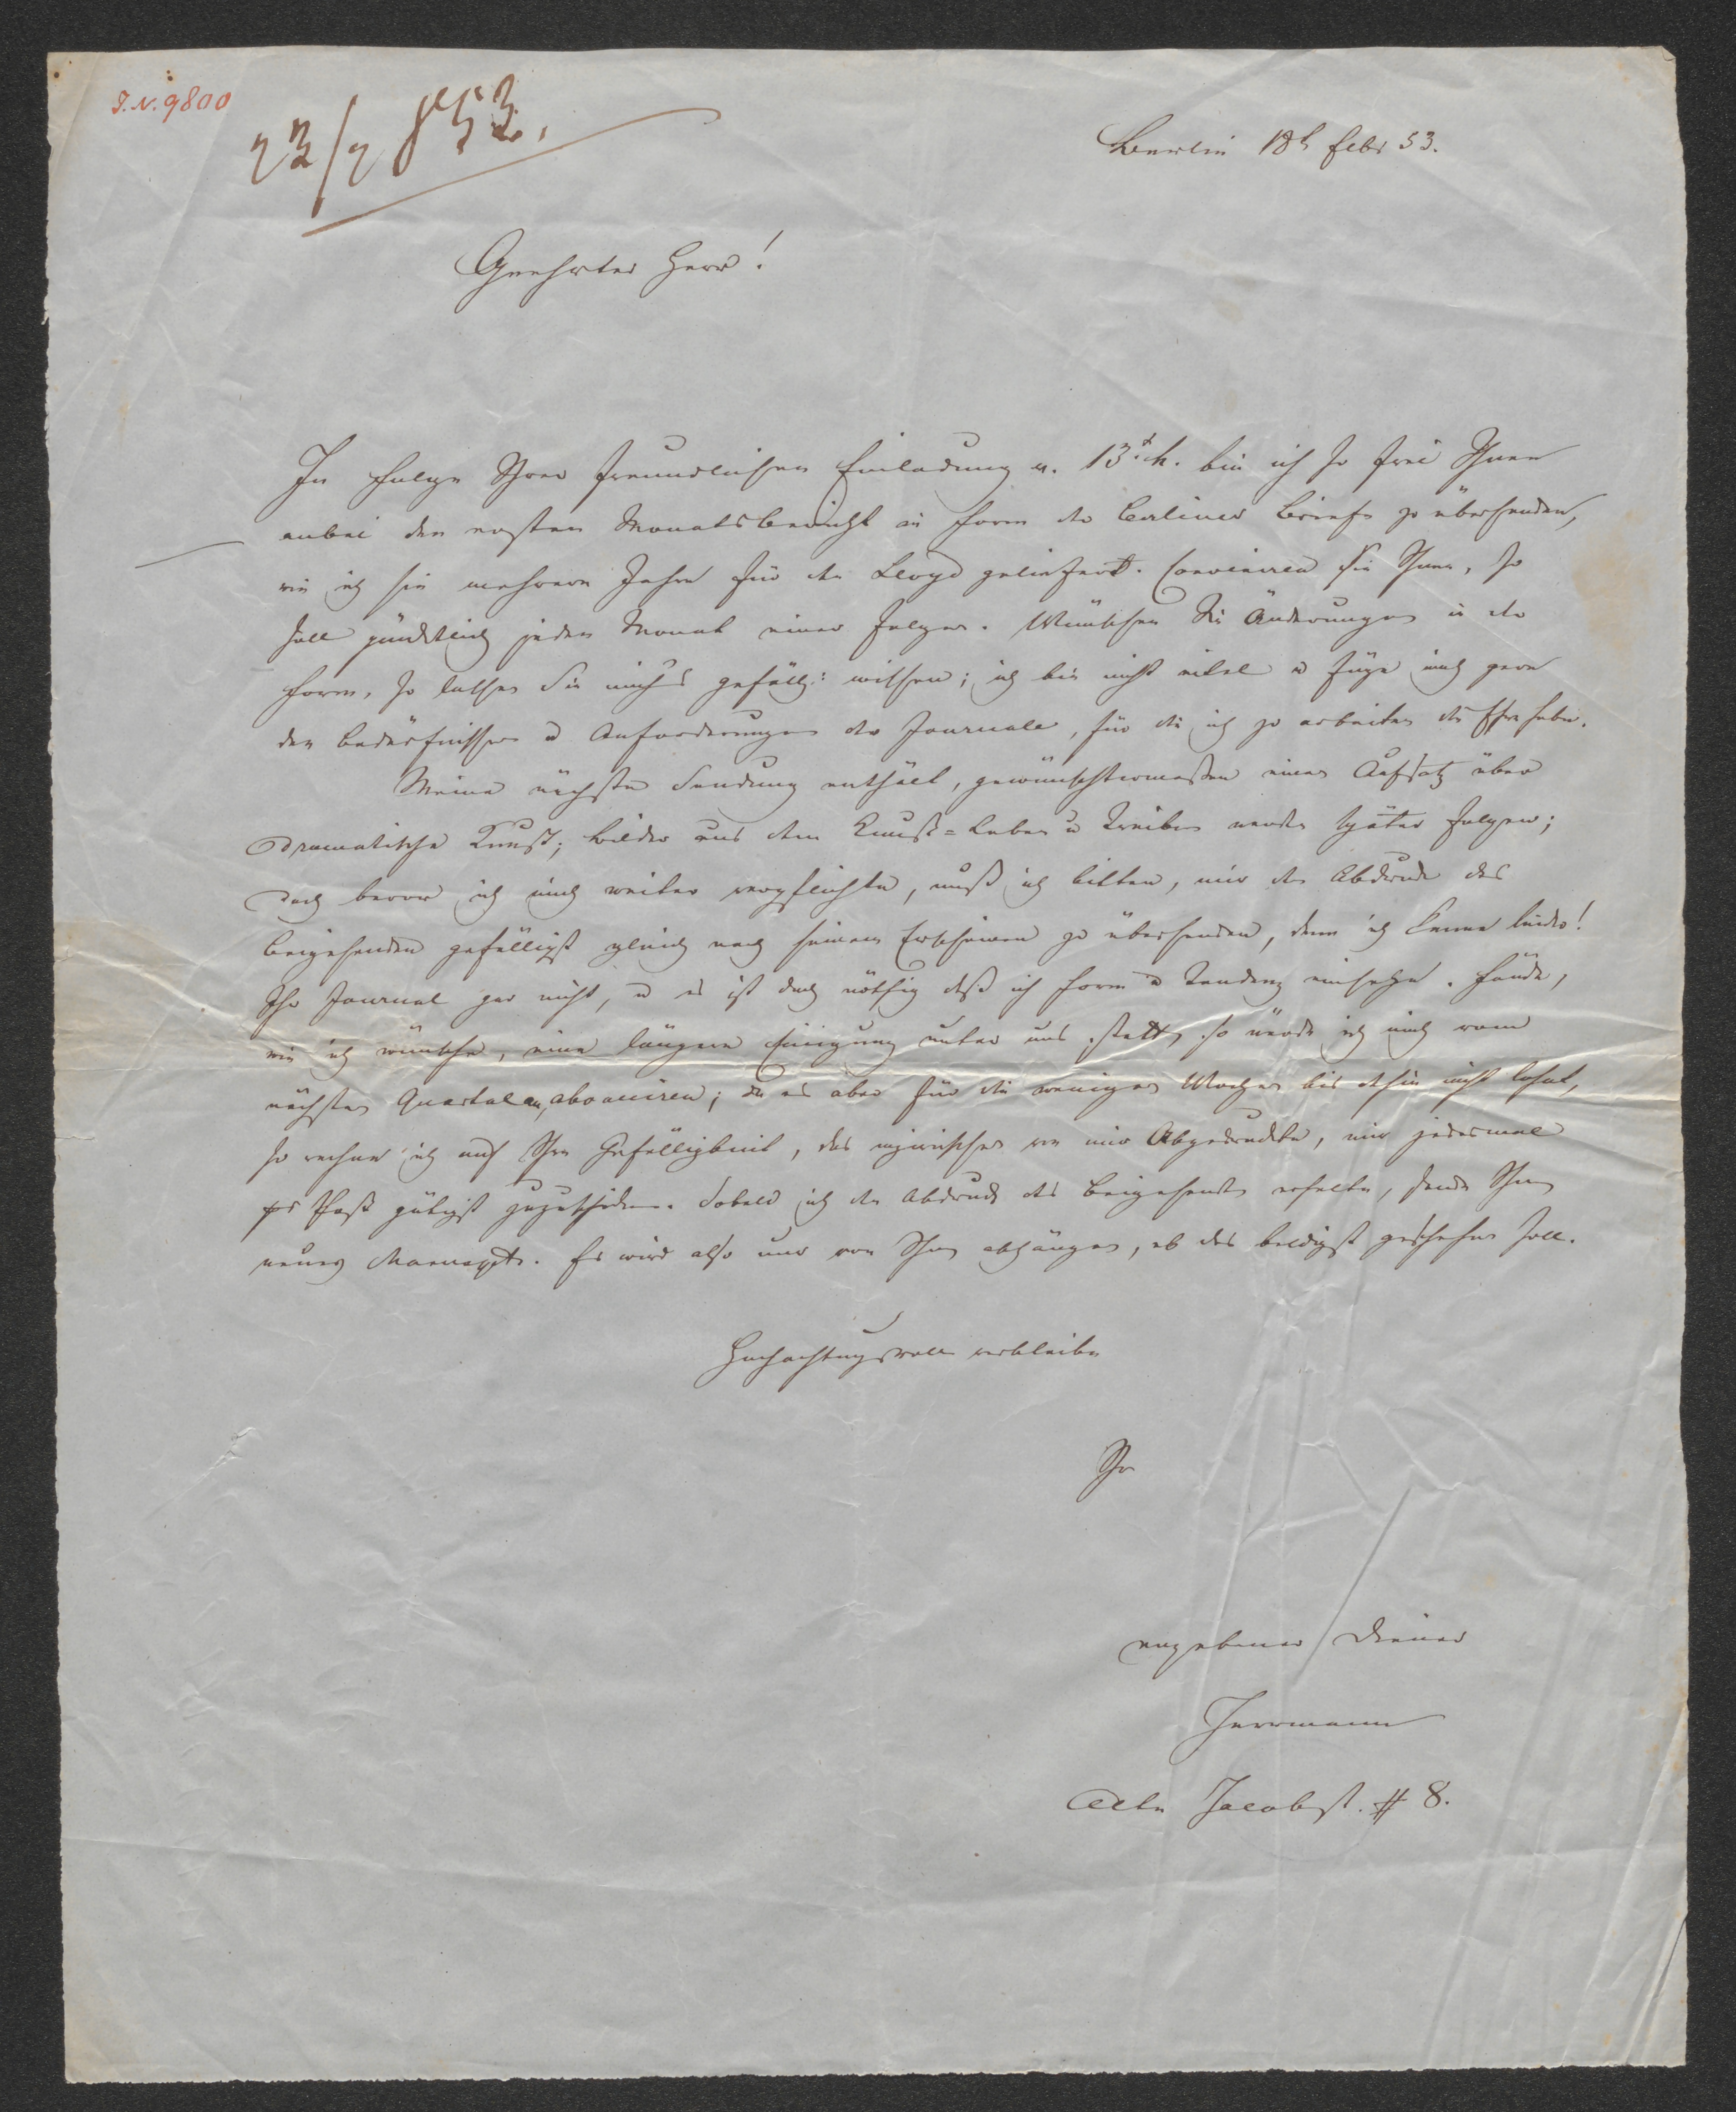 I.N. 9800
23/2 853.
Berlin 18t Febr 53.
Geehrter Herr!
In Folge Ihrer freundlichen Einladung v. 13t. M. bin ich so frei Ihnen
anbei den ersten Monatsbericht in Form der Berliner Briefe zu übersenden,
wie ich sie mehrere Jahre für den Lloyd geliefert. Conveniren sie Ihnen, so
soll pünktlich jeden Monat einer folgen. Wünschen Sie Änderungen in der
Form, so lassen Sie mich's gefällig: wissen; ich bin nicht eitel u füge mich gern
den Bedürfnissen u Anforderungen der Journale, für die ich zu arbeiten die Ehre habe.
Meine nächste Sendung enthält, gewünschtermaßen einen Aufsatz über
dramatische Kunst; Bilder aus dem Kunst=Leben u Treiben werden später folgen;
doch bevor ich mich weiter verpflichte, muß ich bitten, mir den Abdruck des
beigehenden gefälligst gleich nach seinem Erscheinen zu übersenden, denn ich kenne leider!
Ihr Journal gar nicht, u es ist doch nöthig daß ich Form u Tendenz einsehe. Fände,
wie ich wünsche, eine längere Einigung unter uns statt, so würde ich mich vom
nächsten Quartal an, abonniren; da es aber für die wenigen Wochen bis dahin nicht lohnt,
so rechne ich auf Ihre Gefälligkeit, das inzwischen von mir Abgedruckte, mir jedesmal
per Post gütigst zuzuschicken. Sobald ich den Abdruck des Beigehenden erhalte, sende Ihnen
neues Manuscpt. Es wird also nur von Ihnen abhängen, ob das baldigst geschehen soll.
Hochachtungsvoll verbleibe
Ihr
ergebener Diener
Herrmann
Alte Jacobst. # 8.